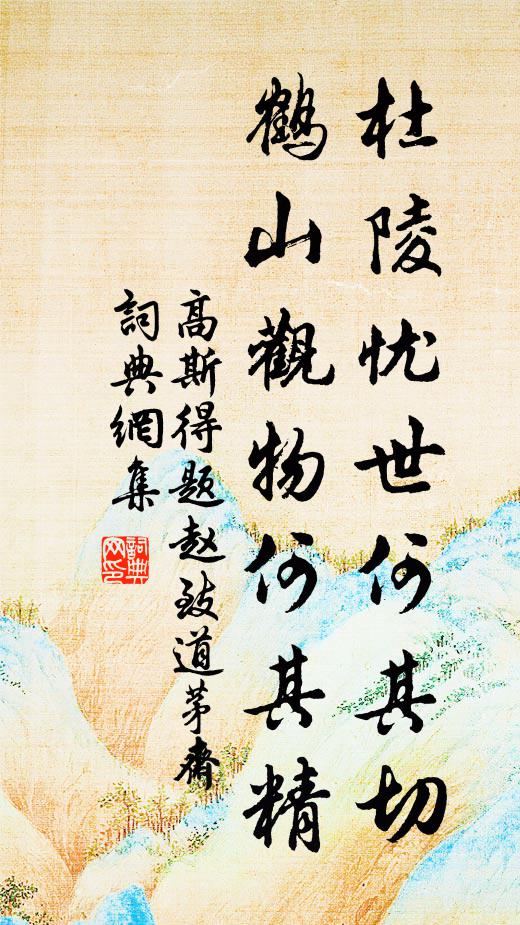 杜陵忧世何其切
鹤山觀物何其精
高斯得题赵致道茅齋
詞典網集
詞典
网印